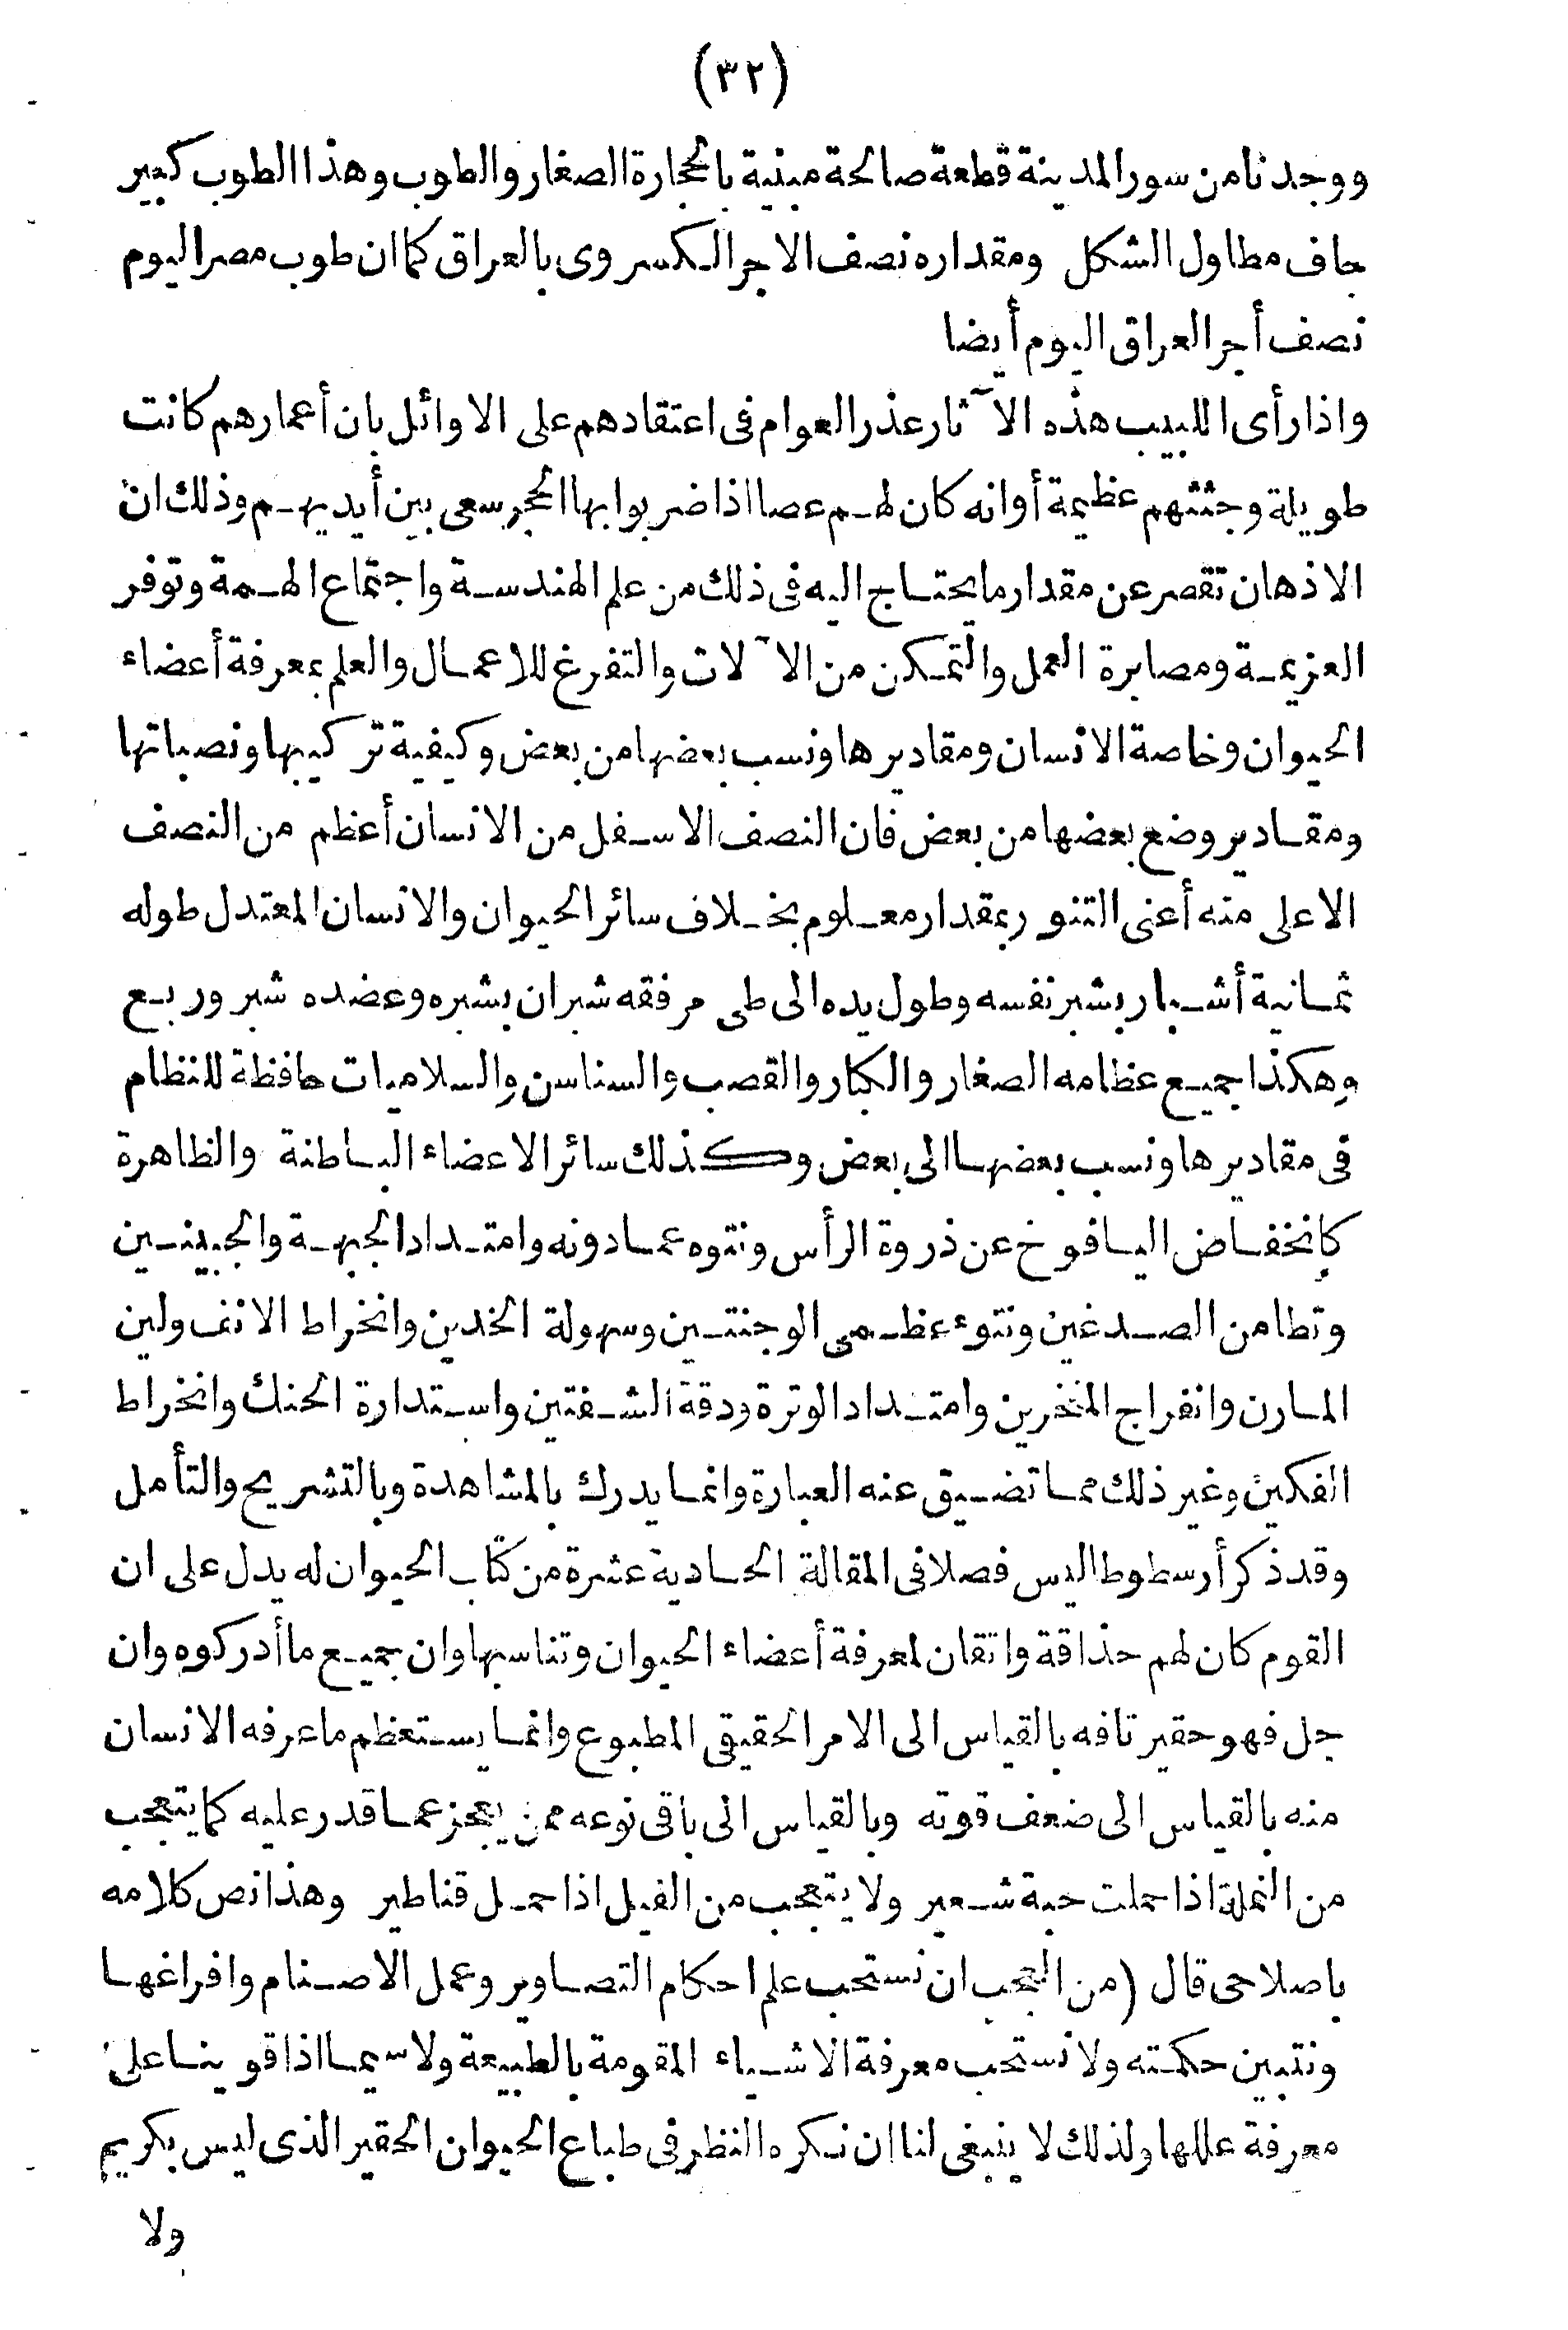 (٣٢)
ووجدنا من سور المدينة قطعة صالحة مبنية بالحجارة الصغار والطوب وهذا الطوب كبير
جاف مطاول الشكل ومقداره نصف الاجر الكسروى بالعراق كما ان طوب مصر اليوم
نصف أجر العراق اليوم أيضا
واذا رأى اللبيب هذه الآثار عذر العوام فى اعتقادهم على الاوائل بان أعمارهم كانت
طويلة وجثثهم عظيمة أوانه كان لهم عصا اذا ضربوا بها الحجر سعى بين أيديهم وذلك ان
الاذهان تقصر عن مقدار ما يحتاج اليه فى ذلك من علم الهندسة واجتماع الهمة وتوفر
العزيمة ومصابرة العمل والتمكن من الآلات والتفرغ للاعمال والعلم بمعرفة أعضاء
الحيوان وخاصة الانسان ومقاديرها ونسب بعضها من بعض وكيفية تركيبها ونصباتها
ومقادير وضع بعضها من بعض فان النصف الاسفل من الانسان أعظم من النصف
الاعلى منه أعنى التنور بمقدار معلوم بخلاف سائر الحيوان والانسان المعتدل طوله
ثمانية أشبار بشبر نفسه وطول يده الى طى مرفقه شبران بشبره وعضده شبر وربع
وهكذا جميع عظامه الصغار والكبار والقصب والسناسن والسلاميات حافظة للنظام
فى مقاديرها ونسب بعضها الى بعض وكذلك سائر الاعضاء الباطنة والظاهرة
كانخفاض اليافوخ عن ذروة الرأس ونتوه عما دونه وامتداد الجبهة والجبينين
وتطامن الصدغين ونتوء عظمى الوجنتين وسهولة الخدين وانخراط الانف ولين
المارن وانفراج المنخرين وامتداد الوترة ودقة الشفتين واستدارة الحنك وانخراط
الفكين وغير ذلك مما تضيق عنه العبارة وانما يدرك بالمشاهدة وبالتشريح والتأمل
وقد ذكر أرسطوطاليس فصلا فى المقالة الحادية عشرة من كتاب الحيوان له يدل على ان
القوم كان لهم حذاقة واتقان لمعرفة أعضاء الحيوان وتناسبها وان جميع ما أدركوه وان
جل فهو حقير تافه بالقياس الى الامر الحقيقى المطبوع وانما يستعظم ما عرفه الانسان
منه بالقياس الى ضعف قوته وبالقياس الى باقى نوعه ممن يعجز عما قدر عليه كما يتعجب
من النملة اذا حملت حبة شعير ولا يتعجب من الفيل اذا حمل قناطير وهذا نص كلامه
باصلاحى قال (من العجب ان نستحب علم احكام التصاوير وعمل الاصنام وافراغها
ونتبين حكمته ولا نستحب معرفة الاشياء المقومة بالطبيعة ولا سيما اذا قوينا على
معرفة عللها ولذلك لا ينبغى لنا ان نكره النظر فى طباع الحيوان الحقير الذى ليس بكريم
ولا